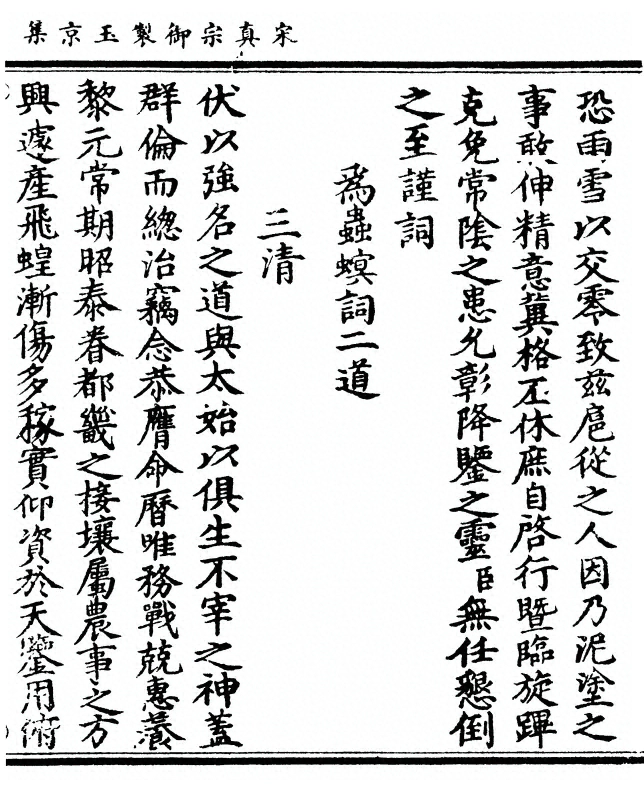 宋真宗御製玉京集
恐雨雪以交零致兹扈從之人因乃泥塗之
事敢伸精意冀格丕休庶自啓行暨臨旋蹕
克免常陰之患允彰降鑒之靈臣無任懇倒
之至謹詞
爲蟲螟詞二道
三清
伏以強名之道與太始以俱生不宰之神蓋
群倫而總治竊念恭膺命曆唯務戰兢惠養
黎元常期昭泰眷都畿之接壤屬農事之方
興遽產飛蝗漸傷多稼實仰資於天鑒用術